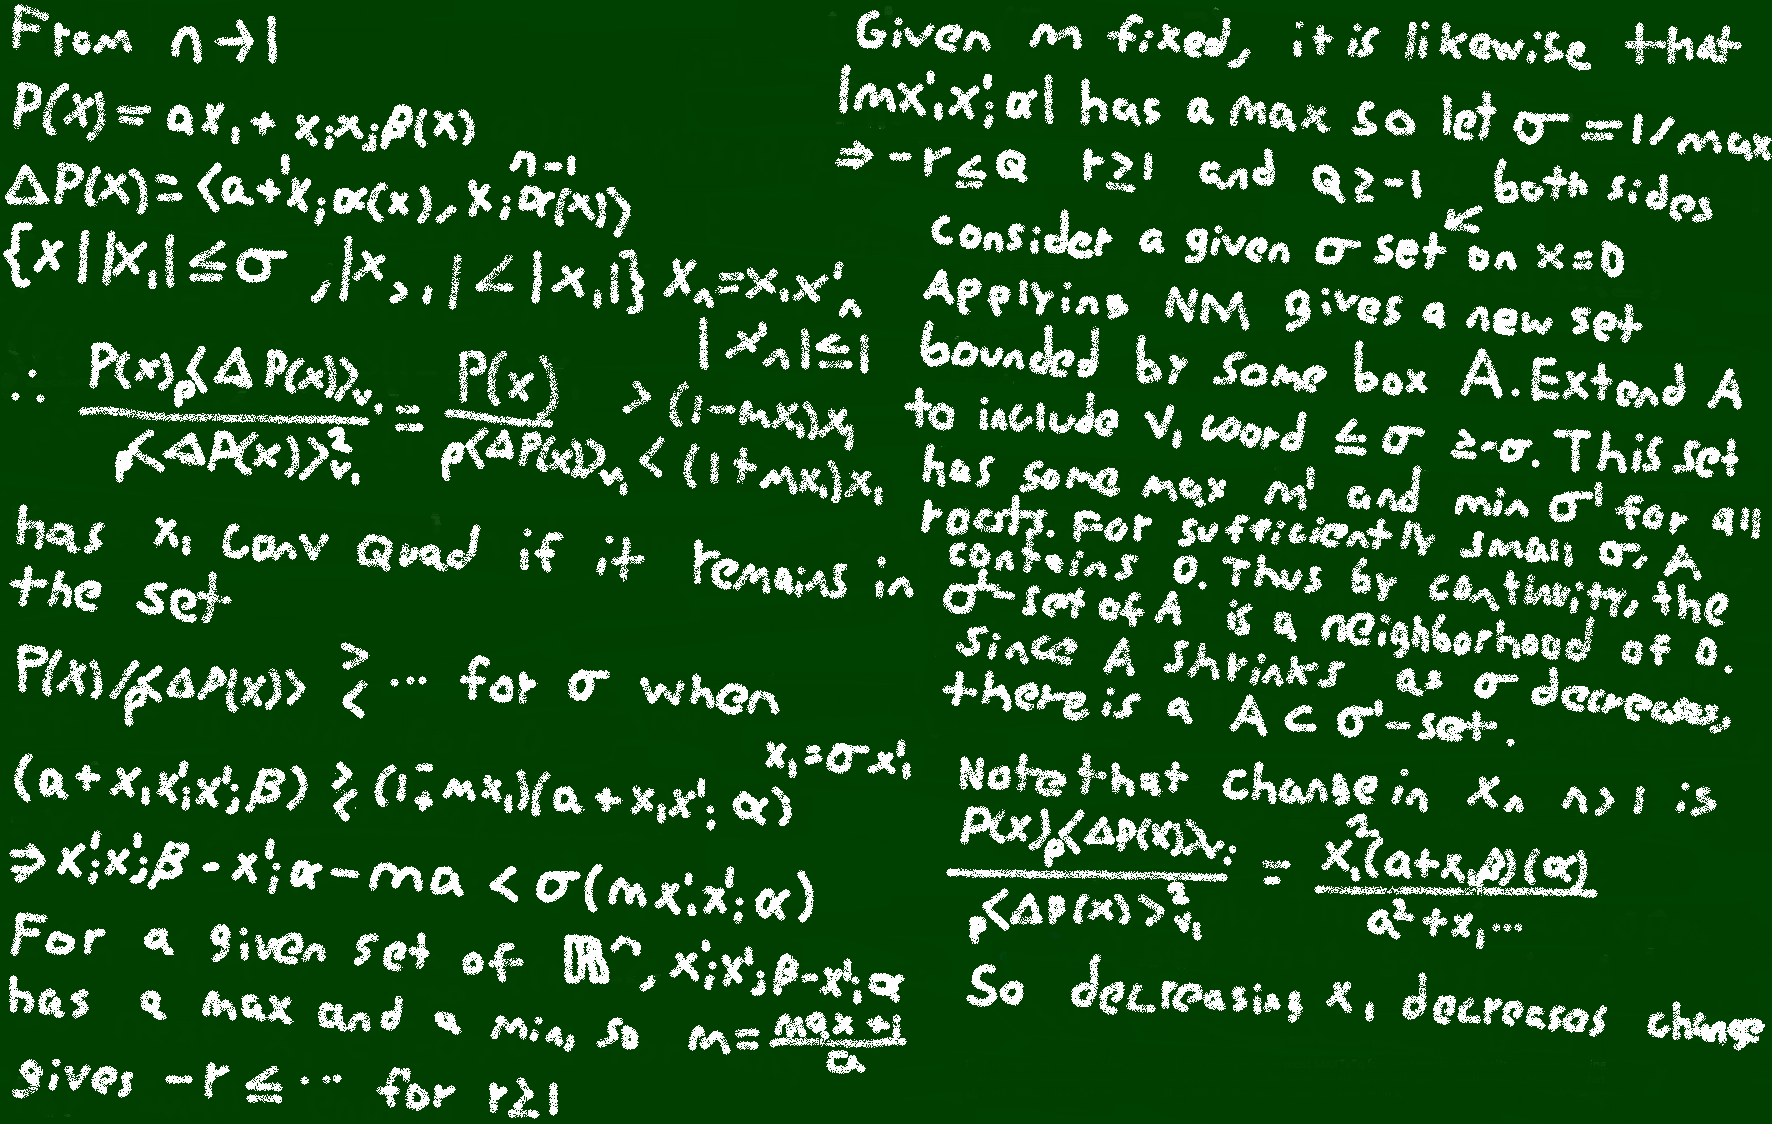 From n→1
P(x) = ax₁ + xᵢxⱼβ(x)
ΔP(x) = ⟨a+'xᵢα(x), xᵢα(x)⟩ n-1
{x||x₁|≤σ, |x>₁|<|x₁|} xₙ=x₁x'ₙ
|x'ₙ|≤1
∴ P(x)ₚ⟨ΔP(x)⟩ᵥᵢ / ₚ⟨ΔP(x)⟩²ᵥ₁ = P(x) / ₚ⟨ΔP(x)⟩ᵥ₁ > (1-mx₁)x₁ < (1+mx₁)x₁
has x₁ conv Quad if it remains in
the set
P(x)/ₚ⟨ΔP(x)⟩ >< ... for σ when
x₁=σx'₁
(a+x₁x'ᵢx'ⱼβ) >< (1∓mx₁)(a+x₁x'ᵢα)
⇒x'ᵢx'ⱼβ - x'ᵢα - ma < σ(mx'₁x'ᵢα)
For a given set of ℝⁿ, x'ᵢx'ⱼβ-x'ᵢα
has a max and a min, so m= max+1 / a
gives -r ≤ ... for r≥1
Given m fixed, it is likewise that
|mx'₁x'ᵢα| has a max so let σ=1/max
⇒ -r≤Q r≥1 and Q≥-1 both sides
Consider a given σ set on x=0
Applying NM gives a new set
bounded by some box A. Extend A
to include v₁ word ≤σ ≥-σ. This set
has some max m' and min σ' for all
roots. For sufficiently small σ, A
contains 0. Thus by continuity, the
σ'-set of A is a neighborhood of 0.
Since A shrinks as σ decreases,
there is a A⊂σ'-set.
Note that change in xₙ n>1 is
P(x)ₚ⟨ΔP(x)⟩ᵥᵢ / ₚ⟨ΔP(x)⟩²ᵥ₁ = x₁²(a+x₁β)(α) / a²+x₁...
So decreasing x₁ decreases change